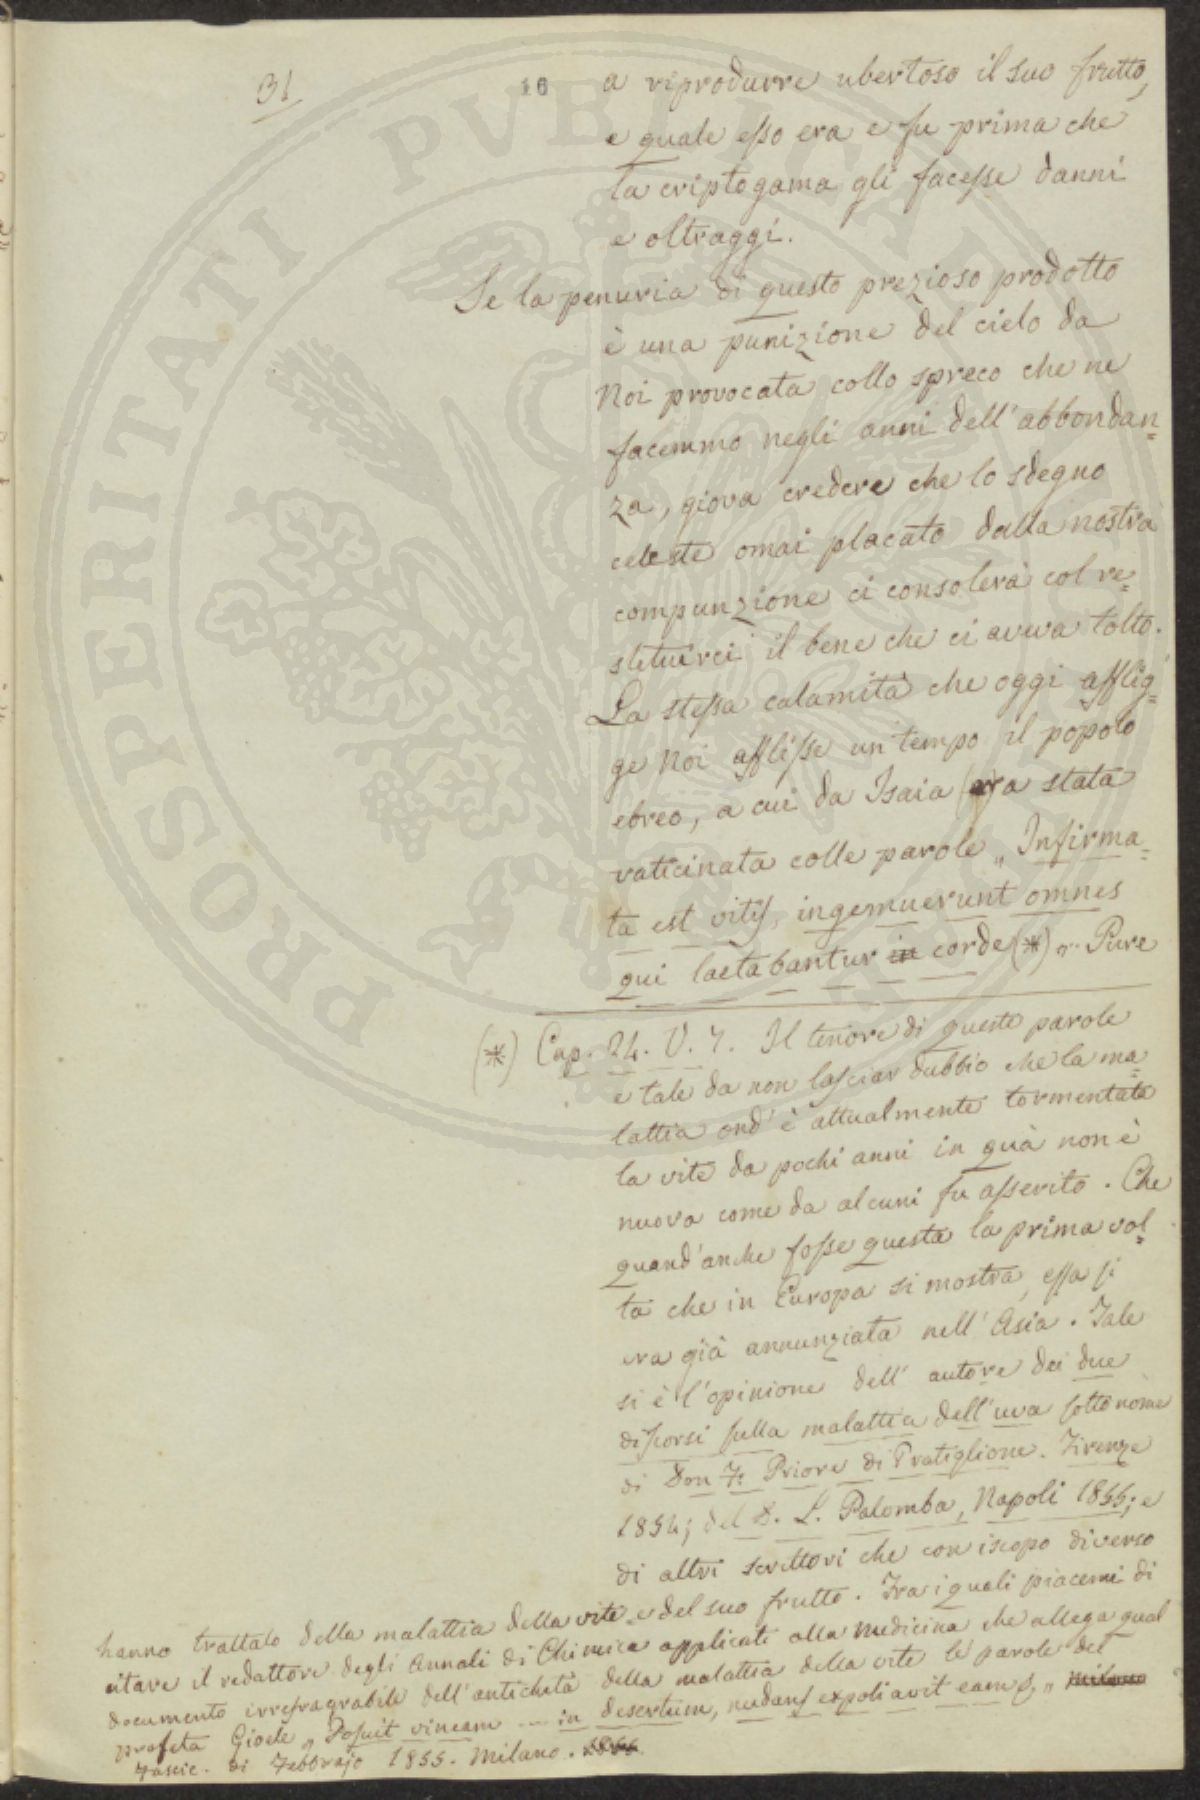 31
16
a riprodurre ubertoso il suo frutto,
e quale esso era e fu prima che
la criptogama gli facesse danni
e oltraggi.
Se la penuria di questo prezioso prodotto
è una punizione del cielo da
Noi provocata collo spreco che ne
facemmo negli anni dell'abbondan=
za, giova credere che lo sdegno
celeste omai placato dalla nostra
compunzione ci consolerà col re=
stituirci il bene che ci aveva tolto.
La stessa calamità che oggi afflig=
ge Noi afflisse un tempo il popolo
ebreo, a cui da Isaia era stata
vaticinata colle parole „ Infirma=
ta est vitis, ingemuerunt omnes
qui laetabantur in corde (*) „. Pure
(*) Cap. 24. V. 7. Il tenore di queste parole
è tale da non lasciar dubbio che la ma=
lattia ond'è attualmente tormentata
la vite da pochi anni in quà non è
nuova come da alcuni fu asserito. Che
quand'anche fosse questa la prima vol=
ta che in Europa si mostra, essa si
era già annunziata nell'Asia. Tale
si è l'opinione dell'autore dei due
discorsi sulla malattia dell'uva sotto nome
di Don F. Priore di Pratiglione. Firenze
1854; del D. L. Palomba, Napoli 1855; e
di altri scrittori che con iscopo diverso
hanno trattato della malattia della vite e del suo frutto. Fra i quali piacemi di
citare il redattore degli Annali di Chimica applicata alla medicina che allega qual
documento irrefragrabile dell'antichità della malattia della vite le parole del
profeta Gioele „ Posuit vineam ... in desertum, nudans expoliavit eam „ Milano
Fascic. di Febbrajo 1855. Milano. 1855
PROSPERITATI PUBLICAE